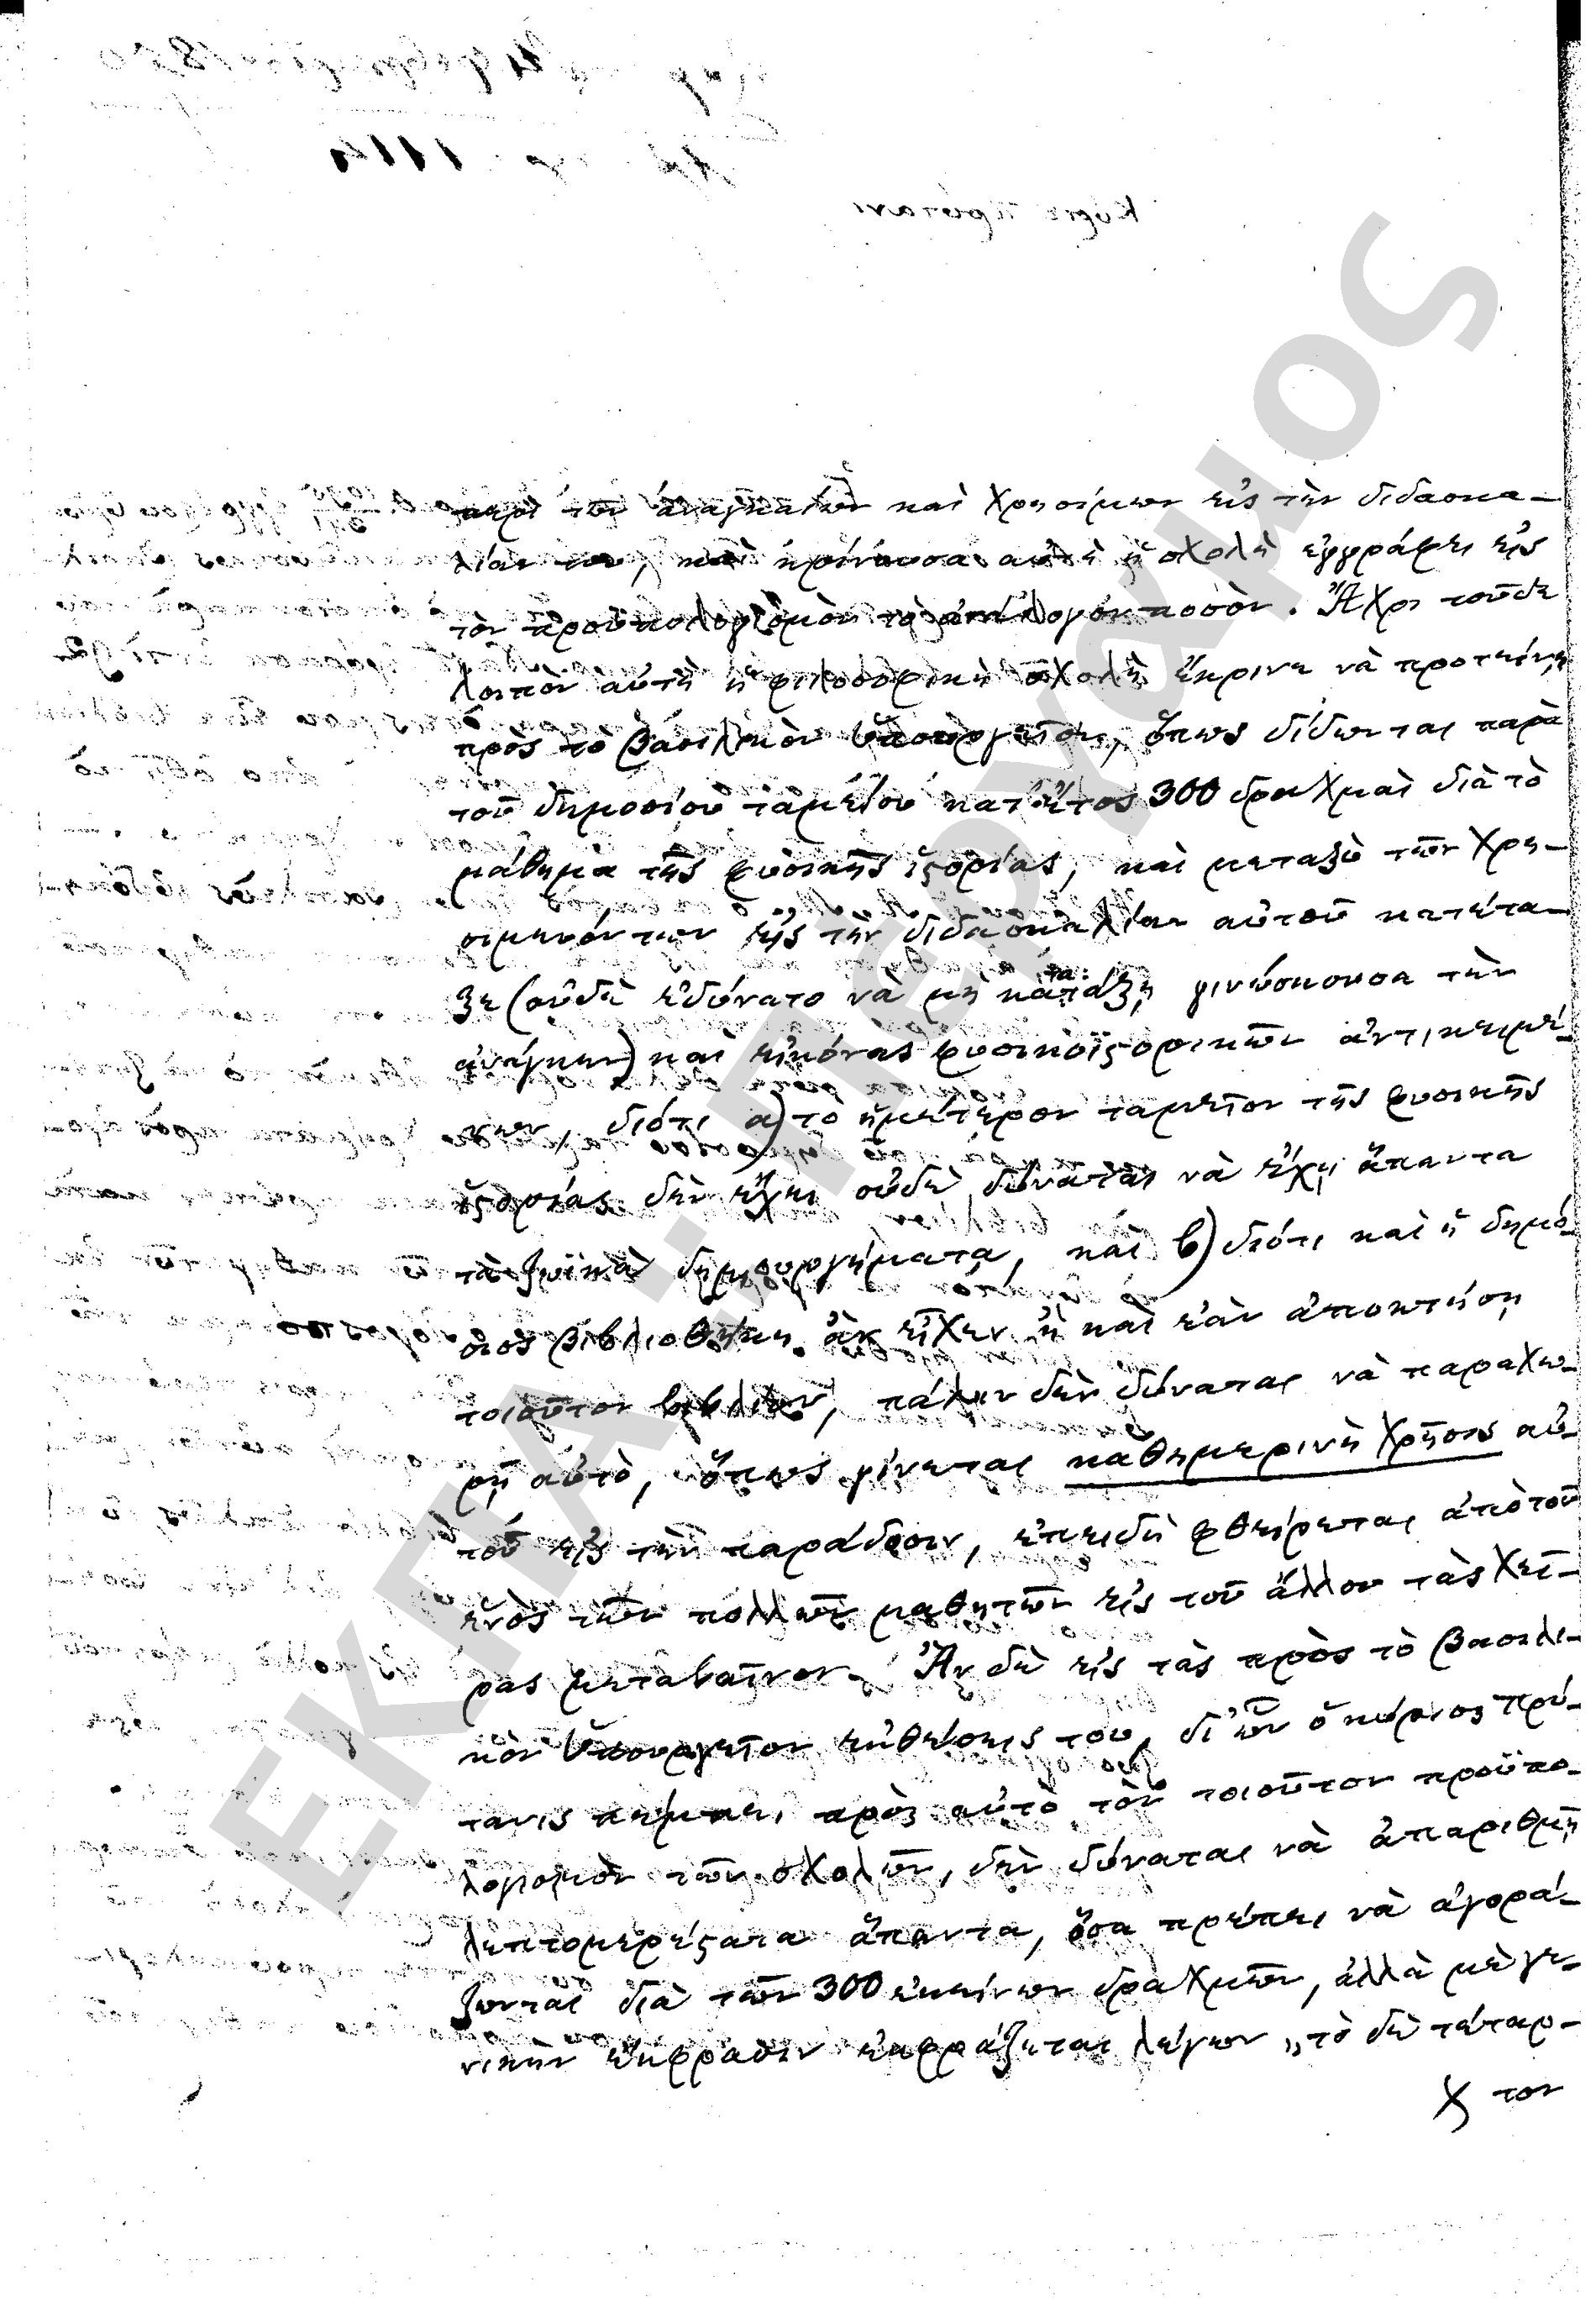 περὶ τῶν ἀναγκαίων καὶ χρησίμων εἰς τὴν διδασκα-
λίαν του, καὶ κρίνουσα αὐτὴ ἡ σχολὴ ἐγγράφει εἰς
τὸν προϋπολογισμὸν τὸ ἀνάλογον ποσόν. Ἄχρι τοῦδε
λοιπὸν αὐτὴ ἡ φιλοσοφικὴ σχολὴ ἔκρινε νὰ προτείνῃ
πρὸς τὸ βασιλικὸν ὑπουργεῖον, ὅπως δίδωνται παρὰ
τοῦ δημοσίου ταμείου κατ' ἔτος 300 δραχμαὶ διὰ τὸ
μάθημα τῆς φυσικῆς ἱϛορίας, καὶ μεταξὺ τῶν χρη-
σιμευόντων εἰς τὴν διδασκαλίαν αὐτοῦ κατέτα-
ξε (οὐδὲ ἐδύνατο νὰ μὴ κατατάξῃ γινώσκουσα τὴν
ἀνάγκην) καὶ εἰκόνας φυσικοϊϛορικῶν ἀντικειμέ-
νων, διότι α) τὸ ἡμέτερον ταμεῖον τῆς φυσικῆς
ἱϛορίας δὲν ἔχει οὐδὲ δύναται νὰ ἔχῃ ἅπαντα
τὰ ζωϊκὰ δημιουργήματα, καὶ β) διότι καὶ ἡ δημό-
σιος βιβλιοθήκη ἂν εἶχεν ἢ καὶ ἐὰν ἀποκτήσῃ
τοιοῦτον βιβλίον, πάλιν δὲν δύναται νὰ παραχω-
ρῇ αὐτὸ, ὅπως γίνεται καθημερινὴ χρῆσις αὐ-
τοῦ εἰς τὴν παράδοσιν, ἐπειδὴ φθείρεται ἀπὸ τοῦ
ἑνὸς τῶν πολλῶν μαθητῶν εἰς τοῦ ἄλλου τὰς χεῖ-
ρας μεταβαῖνον. Ἂν δὲ εἰς τὰς πρὸς τὸ βασιλι-
κὸν ὑπουργεῖον ἐκθέσεις του, δι' ὧν ὁ κύριος πρύ-
τανις πέμπει πρὸς αὐτὸ τὸν τοιοῦτον προϋπο-
λογισμὸν τῶν σχολῶν, δὲν δύναται νὰ ἀπαριθμῇ
λεπτομερέϛατα ἅπαντα, ὅσα πρέπει νὰ ἀγορά-
ζωνται διὰ τῶν 300 ἐκείνων δραχμῶν, ἀλλὰ μὲ γε-
νικὴν ἔκφρασιν ἐκφράζεται λέγων „τὸ δὲ τέταρ-
τον
ΕΚΠΑ: ΠΕΡΓΑΜΟΣ